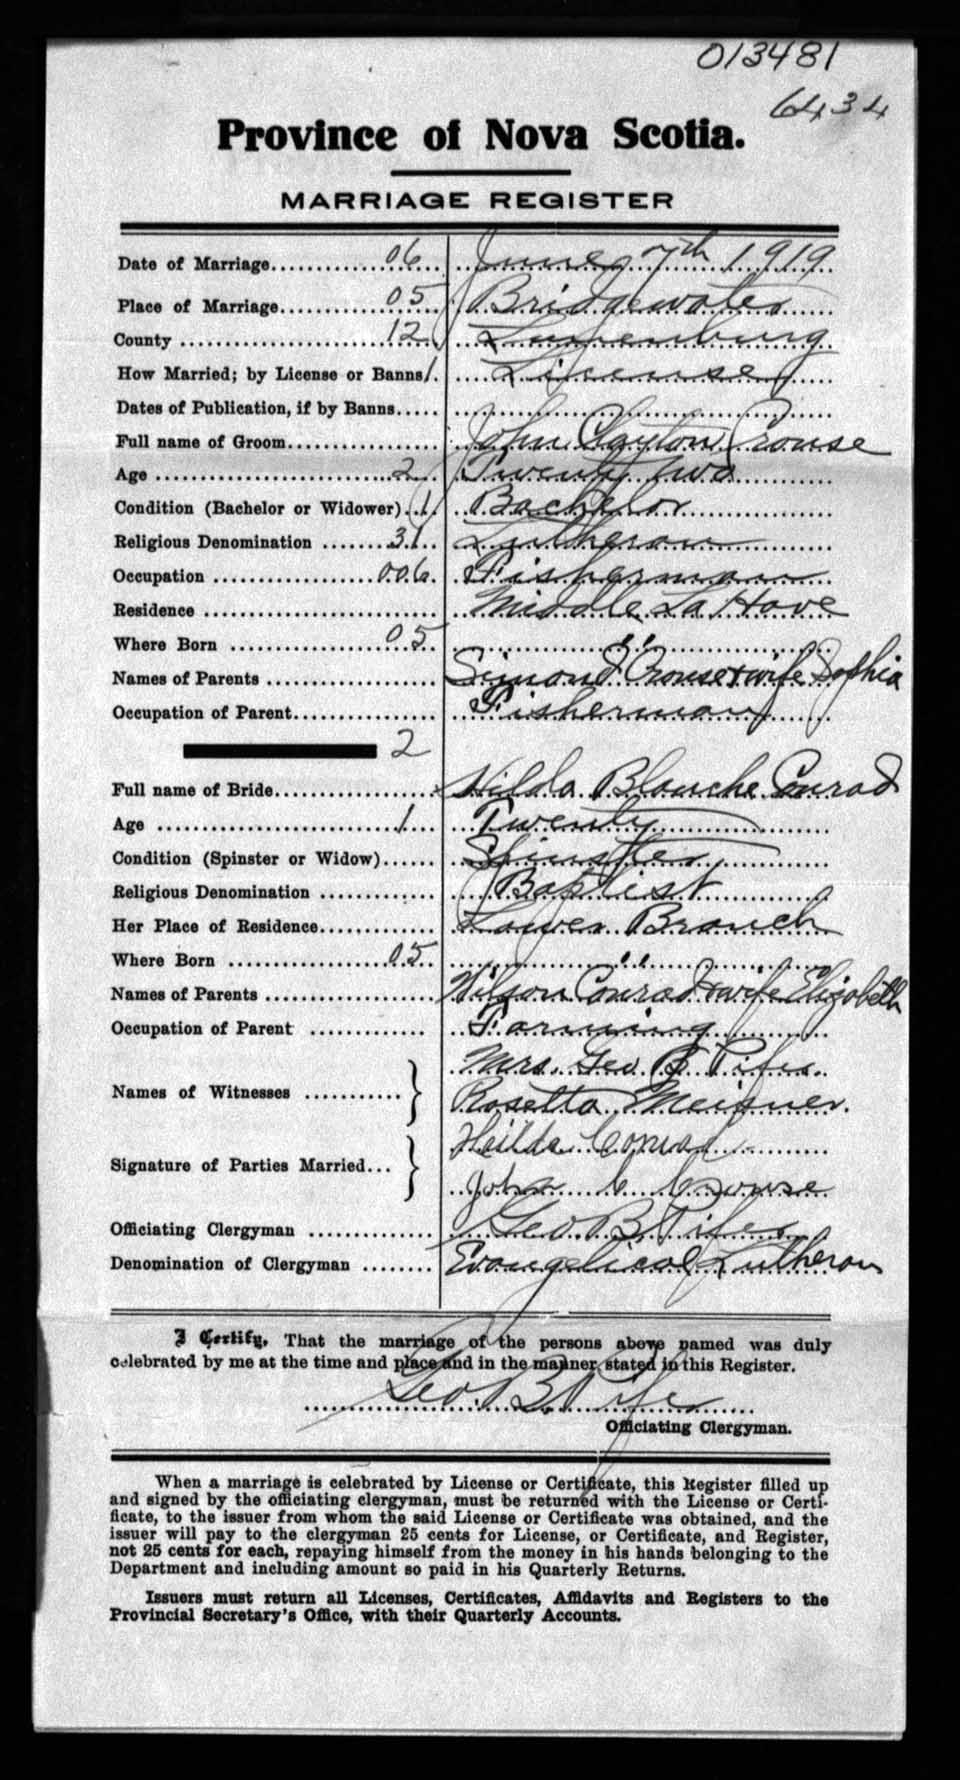 013481
6434
Province of Nova Scotia.
MARRIAGE REGISTER
Date of Marriage 06 June 7th 1919
Place of Marriage 05 Bridgewater
County 12 Lunenburg
How Married; by License or Banns 1 License
Dates of Publication, if by Banns
Full name of Groom John Clayton Crouse
Age 2 Twenty two
Condition (Bachelor or Widower) 1 Bachelor
Religious Denomination 31 Lutheran
Occupation 006 Fisherman
Residence Middle La Have
Where Born 05 " "
Names of Parents Simond Crouse & wife Sophia
Occupation of Parent Fisherman
2
Full name of Bride Hilda Blanche Conrad
Age 1 Twenty
Condition (Spinster or Widow) Spinster
Religious Denomination Baptist
Her Place of Residence Lower Branch
Where Born 05 " "
Names of Parents Wilson Conrad & wife Elizabeth
Occupation of Parent Farming
Mrs. Geo B Pifer.
Names of Witnesses
Rosetta Meisner.
Hailda Conrad
Signature of Parties Married
John C Crouse
Officiating Clergyman Geo B Pifer
Denomination of Clergyman Evangelical Lutheran
I Certify, That the marriage of the persons above named was duly
celebrated by me at the time and place and in the manner stated in this Register.
Geo B. Pifer
Officiating Clergyman.
When a marriage is celebrated by License or Certificate, this Register filled up
and signed by the officiating clergyman, must be returned with the License or Certi-
ficate, to the issuer from whom the said License or Certificate was obtained, and the
issuer will pay to the clergyman 25 cents for License, or Certificate, and Register,
not 25 cents for each, repaying himself from the money in his hands belonging to the
Department and including amount so paid in his Quarterly Returns.
Issuers must return all Licenses, Certificates, Affidavits and Registers to the
Provincial Secretary's Office, with their Quarterly Accounts.